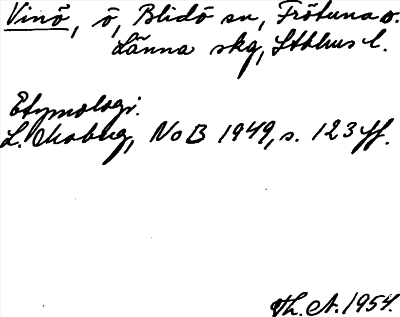 Vinö, ö, Blidö sn, Frötuna o.
Länna skg, Sthlms l.
Etymologi.
L. Moberg, NoB 1949, s. 123 ff.
Th. A. 1954.